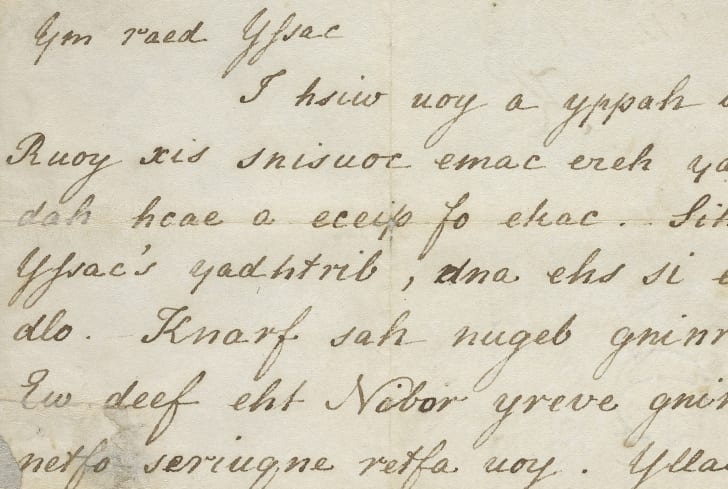 Ym raed Yssac
I hsiw uoy a yppah
Ruoy xis snisuoc emac ereh
dah hcae a eceip fo ekac.
Yssac's yadhtrib, dna ehs si
dlo. Knarf sah nugeb
Ew deef eht Nibor yreve
netfo seriuqne retfa uoy.